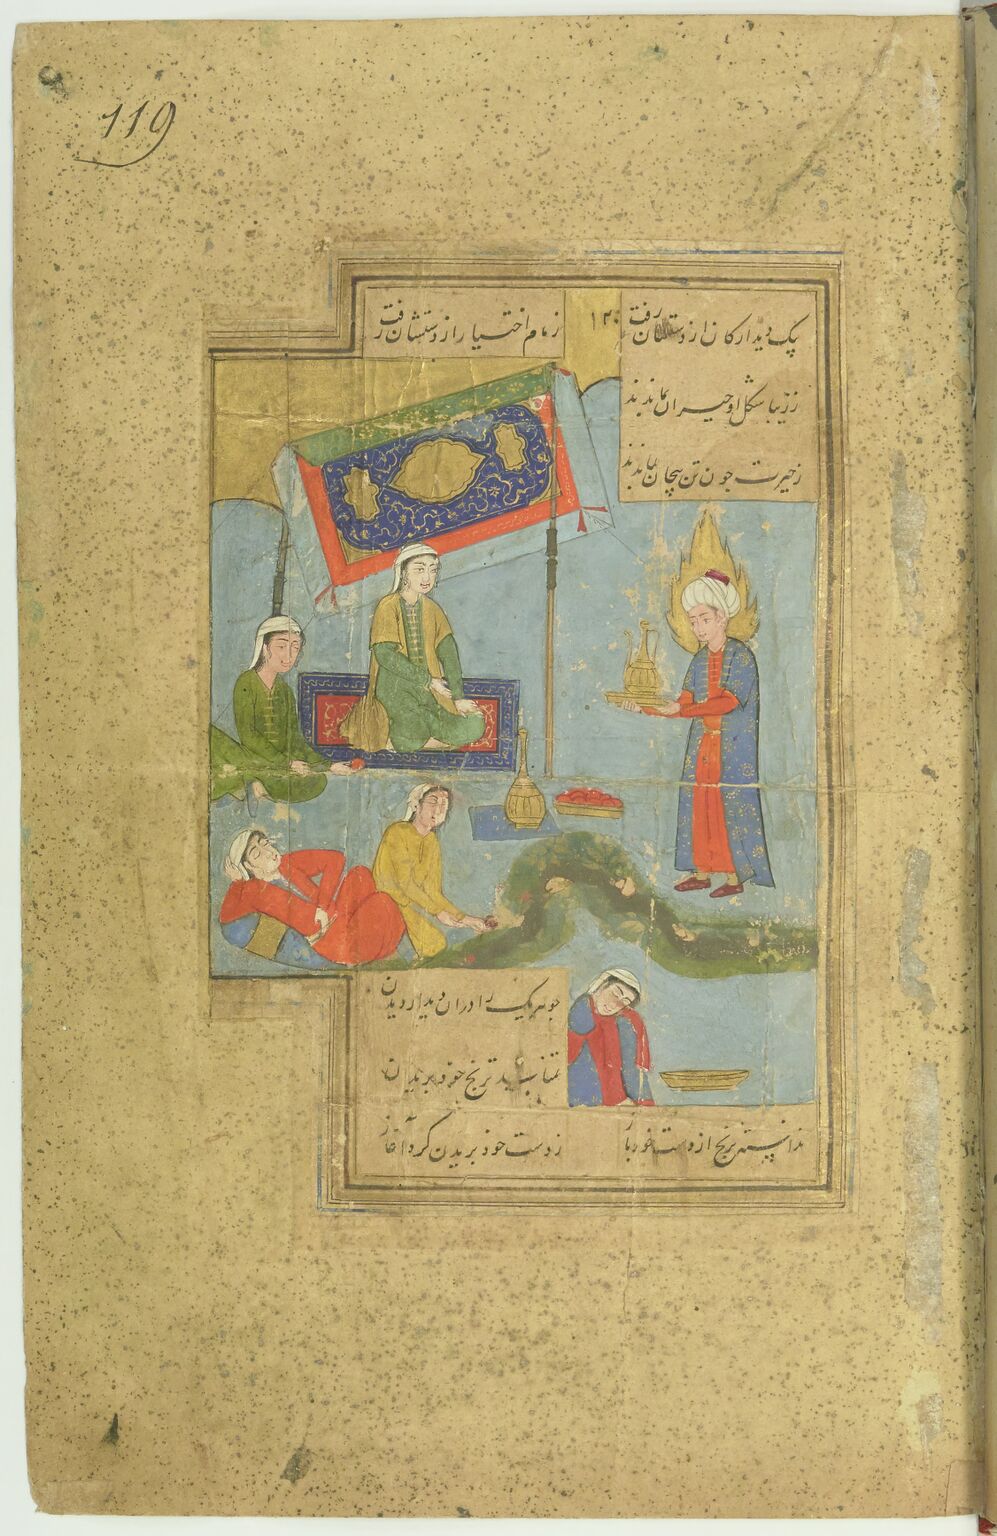 119
بیک دیدار کان از دستشان رفت ۱۲۰ زمام اختیار از دستشان رفت
ز زیبا شکل او حیران بماندند
ز حیرت چون تن بیجان بماندند
چو هر یک را در آن دیدار دیدن
تمنا شد ترنج خود بریدن
ندانسته ترنج از دست خود باز ز دست خود بریدن کرد آغاز